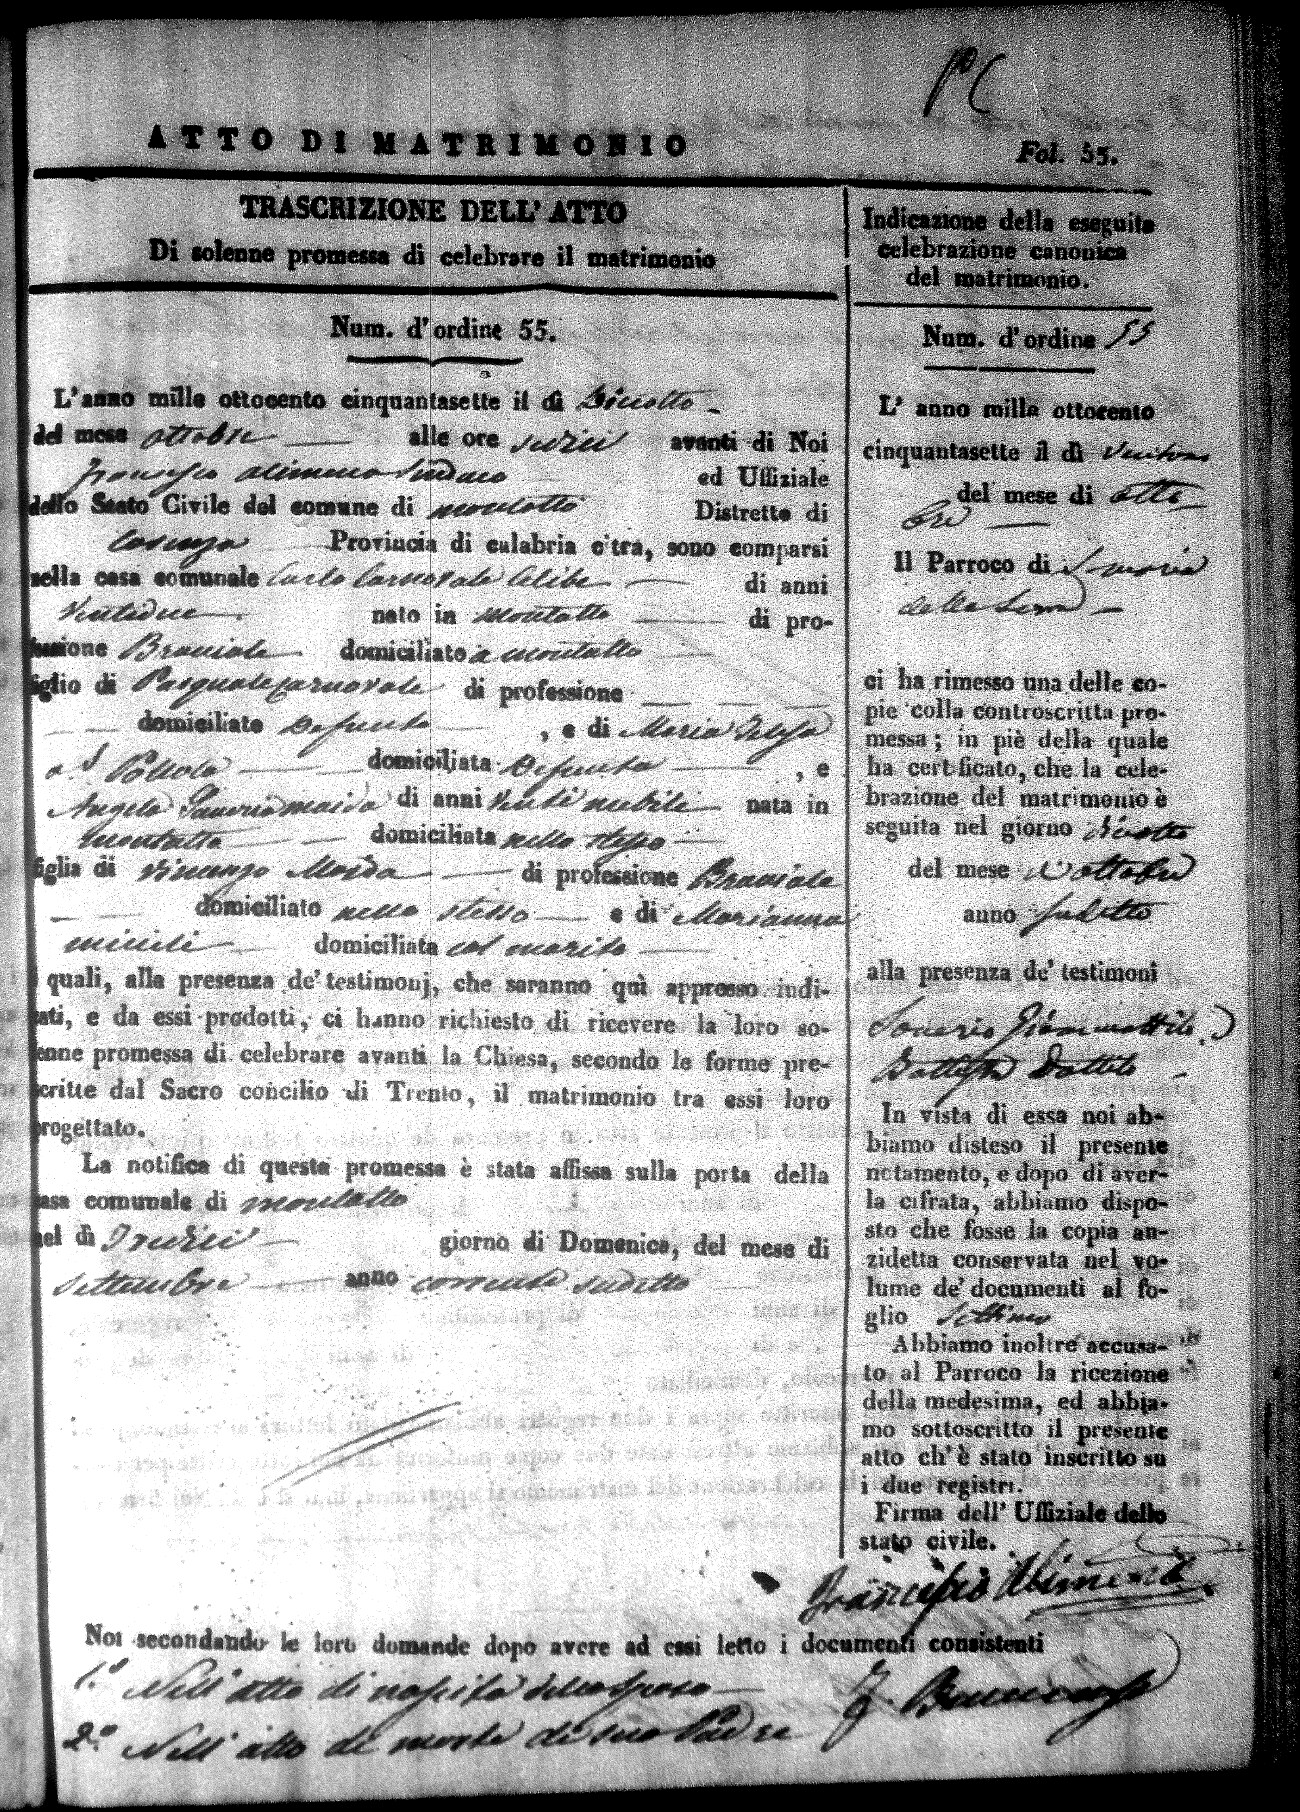 ATTO DI MATRIMONIO
Fol. 55.
TRASCRIZIONE DELL' ATTO
Di solenne promessa di celebrare il matrimonio
Num. d' ordine 55.
L' anno mille ottocento cinquantasette il dì Diciotto
del mese ottobre alle ore sedici avanti di Noi
Francesco Alimena Sindaco ed Uffiziale
dello Stato Civile del comune di Montalto Distretto di
Cosenza Provincia di calabria citra, sono comparsi
nella casa comunale Carlo Carnovale Celibe di anni
Ventidue nato in Montalto di pro-
fessione Bracciale domiciliato a Montalto
figlio di Pasquale Carnovale di professione
domiciliato Defunto , e di Maria Teresa
domiciliata Defunta , e
Angela Saveria Maida di anni Venti nubile nata in
Montalto domiciliata nello stesso
figlia di Vincenzo Maida di professione Bracciale
domiciliato nello stesso e di Marianna
domiciliata col marito
i quali, alla presenza de' testimonj, che saranno quì appresso indi-
cati, e da essi prodotti, ci hanno richiesto di ricevere la loro so-
lenne promessa di celebrare avanti la Chiesa, secondo le forme pre-
scritte dal Sacro concilio di Trento, il matrimonio tra essi loro
progettato.
La notifica di questa promessa è stata affissa sulla porta della
casa comunale di Montalto
nel dì Tredici giorno di Domenica, del mese di
Settembre anno corrente sudetto
Indicazione della eseguita
celebrazione canonica
del matrimonio.
Num. d' ordine 55
L' anno mille ottocento
cinquantasette il dì
del mese di otto
bre
Il Parroco di S. Maria
della Serra
ci ha rimesso una delle co-
pie colla controscritta pro-
messa; in piè della quale
ha certificato, che la cele-
brazione del matrimonio è
seguita nel giorno diciotto
del mese d'ottobre
anno sudetto
alla presenza de' testimoni
Saverio Giammattilo
Battista Dattilo
In vista di essa noi ab-
biamo disteso il presente
notamento, e dopo di aver-
la cifrata, abbiamo dispo-
sto che fosse la copia an-
zidetta conservata nel vo-
lume de' documenti al fo-
glio settimo
Abbiamo inoltre accusa-
to al Parroco la ricezione
della medesima, ed abbia-
mo sottoscritto il presente
atto ch' è stato inscritto su
i due registri.
Firma dell' Uffiziale dello
stato civile.
Francesco Alimena
Noi secondando le loro domande dopo avere ad essi letto i documenti consistenti
1.º Nell'atto di nascita dello sposo
2.º Nell'atto di morte di suo Padre